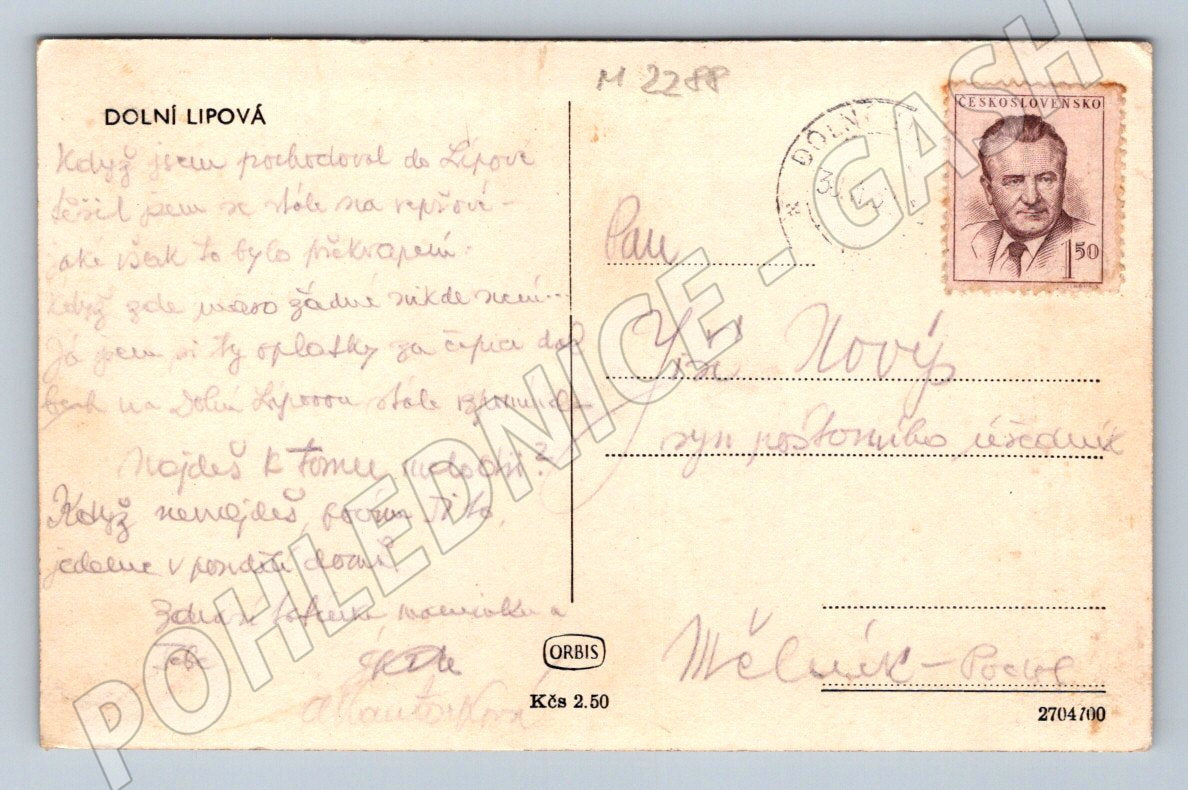 M 2288
DOLNÍ LIPOVÁ
DOLNÍ
ČESKOSLOVENSKO
1 50
Když jsem pochodoval do Lipové
těšil jsem se stále na vepřové –
jaké však to bylo překvapení
když zde maso žádné nikde není...
Já jsem si ty oplatky za čepici dal
na Dolní Lipovou stále
Najdeš k tomu melodii?
Když nenajdeš,
jedeme v pondělí domů
Zdraví tatínka maminku a
Tebe
Pan
Nový
syn poštovního úředník
Mělník –
ORBIS
Kčs 2.50
2704/00
POHLEDNICE - GASH